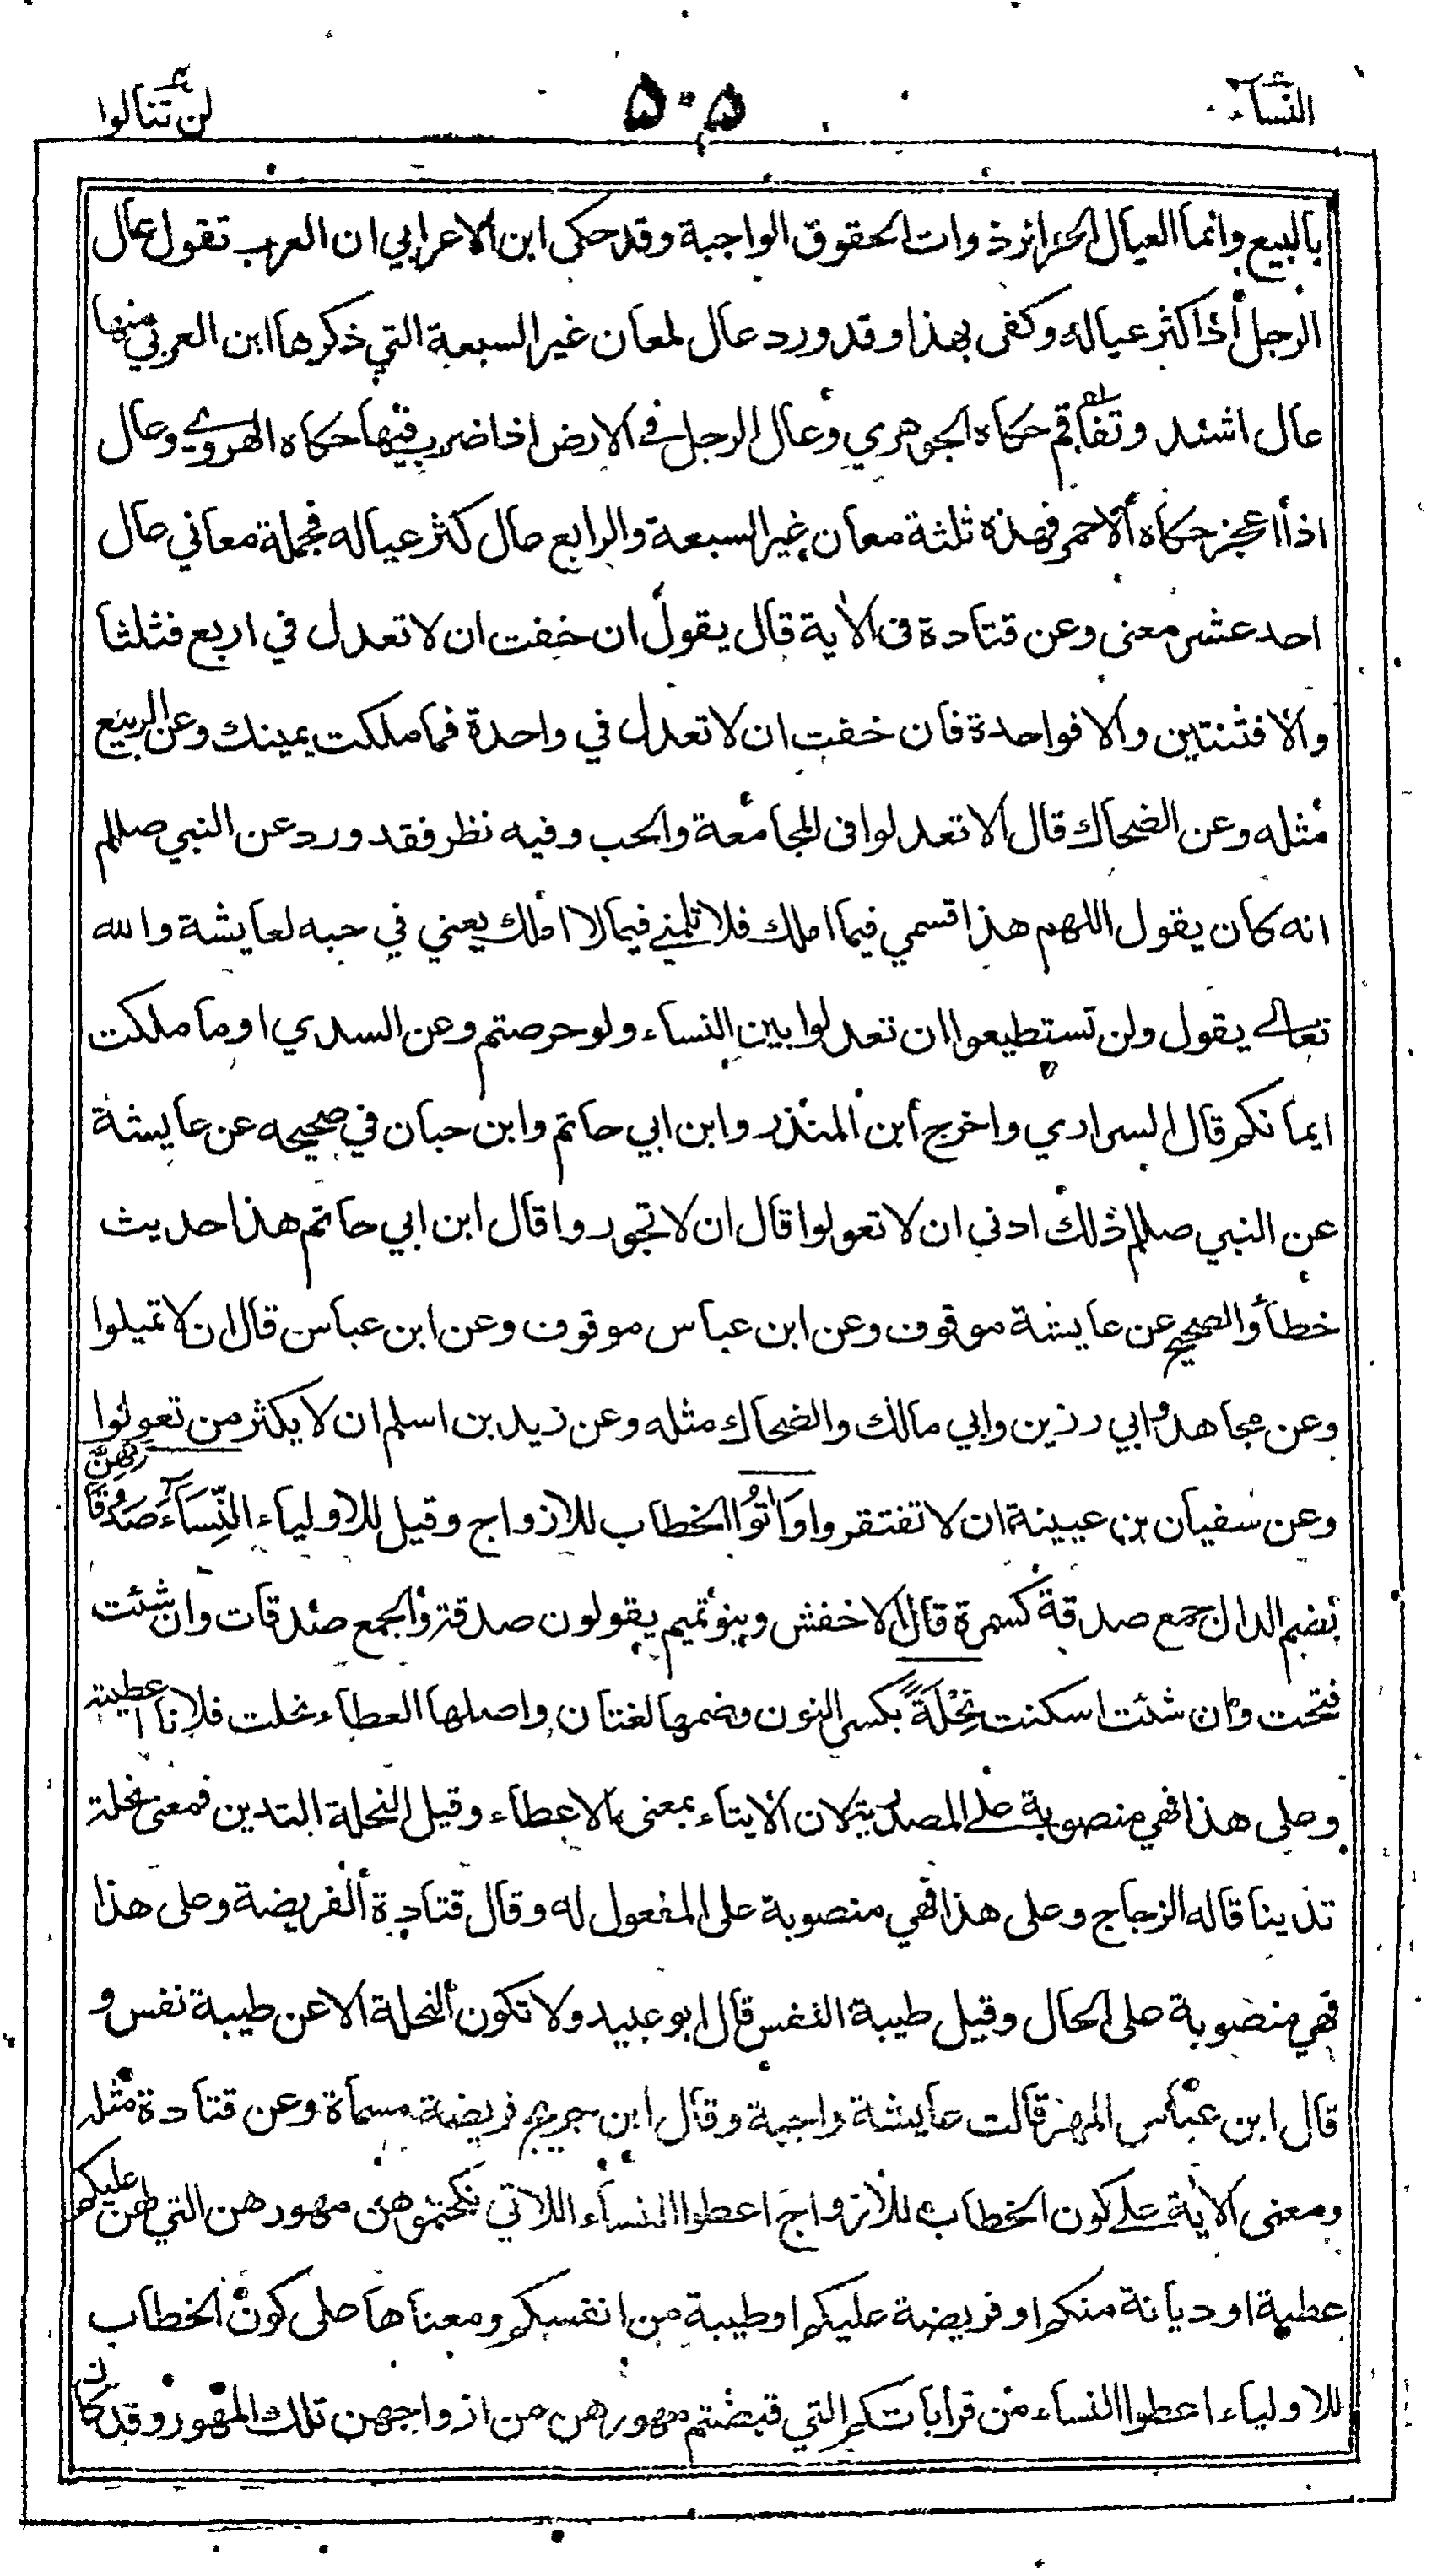 النساء
٥٠٥
لن تنالوا
بالبيع وانما العيال الحرائر ذوات الحقوق الواجبة وقد حكى ابن الاعرابي ان العرب تقول عال
الرجل اذا كثر عياله وكفى بهذا وقد ورد عال لمعان غير السبعة التي ذكرها ابن العربي منها
عال اشتد وتفاقم حكاه الجوهري وعال الرجل في الارض اذا ضرب فيها حكاه الهروي وعال
اذا اعجز حكاه الاحمر فهذه ثلثة معان غير السبعة والرابع عال كثر عياله فجملة معاني عال
احد عشر معنى وعن قتادة فى الأية قال يقول ان خفت ان لا تعدل في اربع فثلثا
والا فثنتين والا فواحدة فان خفت ان لا تعدل في واحدة فما ملكت يمينك وعن الربيع
مثله وعن الضحاك قال الا تعدلوا فى المجامعة والحب وفيه نظر فقد ورد عن النبي صللم
انه كان يقول اللهم هذا قسمي فيما املك فلا تلمني فيما لا املك يعني في حبه لعايشة والله
تعالى يقول ولن تستطيعوا ان تعدلوا بين النساء ولو حرصتم وعن السدي او ما ملكت
ايمانكم قال السراري واخرج ابن المنذر وابن ابي حاتم وابن حبان في صحيحه عن عايشة
عن النبي صللم ذلك ادنى ان لا تعولوا قال ان لا تجوروا قال ابن ابي حاتم هذا حديث
خطأ والصحيح عن عايشة موقوف وعن ابن عباس موقوف وعن ابن عباس قال ان لا تميلوا
وعن مجاهد وابي رزين وابي مالك والضحاك مثله وعن زيد بن اسلم ان لا يكثر من تعولوا
وعن سفيان بن عيينة ان لا تفتقروا وَاٰتُوا الخطاب للازواج وقيل للاولياء النِّسَآءَ صَدُقَاتِهِنَّ
بضم الدال جمع صدقة كسمرة قال الاخفش وبنو تميم يقولون صدقة والجمع صدقات وان شئت
فتحت وان شئت اسكنت نِحْلَةً بكسر النون وضمها لغتان واصلها العطاء نحلت فلانا اعطيته
وعلى هذا فهي منصوبة على المصدرية لان الايتاء بمعنى الاعطاء وقيل النحلة التدين فمعنى نحلة
تدينا قاله الزجاج وعلى هذا فهي منصوبة على المفعول له وقال قتادة الفريضة وعلى هذا
فهي منصوبة على الحال وقيل طيبة النفس قال ابو عبيد ولا تكون النحلة الا عن طيبة نفس و
قال ابن عباس المهر قالت عايشة واجبة وقال ابن جريج فريضة مسماة وعن قتادة مثله
ومعنى الأية على كون الخطاب للازواج اعطوا النساء اللاتي نكحتموهن مهورهن التي لهن عليكم
عطية او ديانة منكم او فريضة عليكم او طيبة من انفسكم ومعناها على كون الخطاب
للاولياء اعطوا النساء من قراباتكم التي قبضتم مهورهن من ازواجهن تلك المهور وقد كان